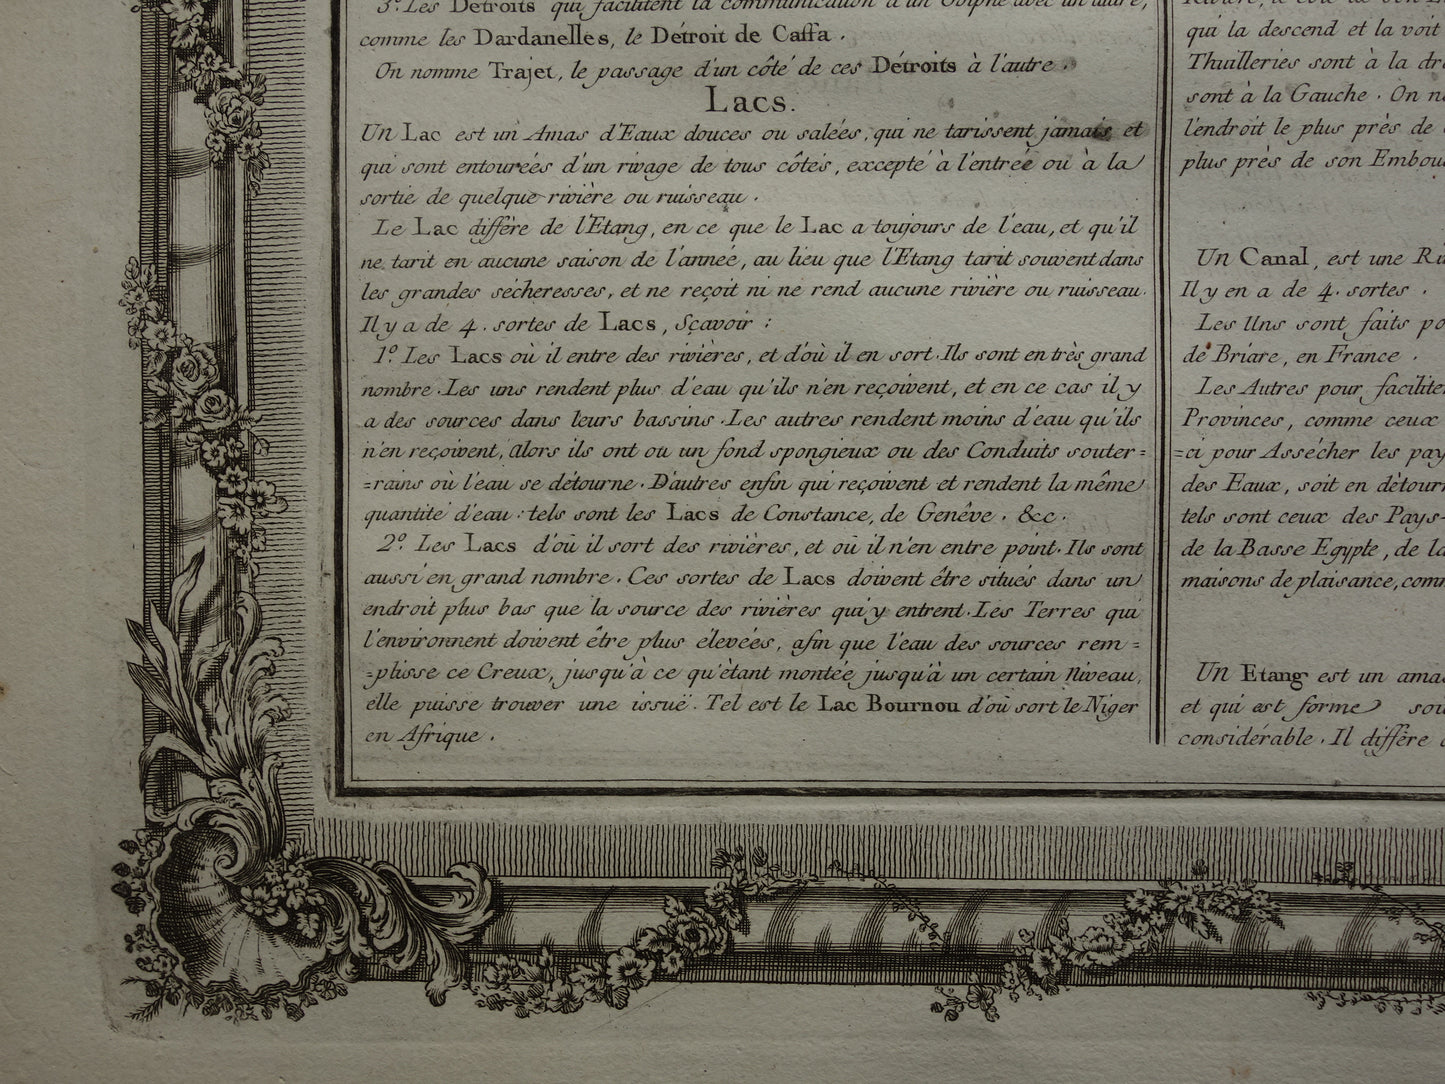 3º. Les Détroits qui facilitent la communication d'un Golphe avec un autre,
comme les Dardanelles, le Détroit de Caffa.
On nomme Trajet, le passage d'un côté de ces Détroits à l'autre.
Lacs.
Un Lac est un Amas d'Eaux douces ou salées, qui ne tarissent jamais et
qui sont entoureés d'un rivage de tous côtés, excepté à l'entreé ou à la
sortie de quelque rivière ou ruisseau.
Le Lac diffère de l'Etang, en ce que le Lac a toujours de l'eau, et qu'il
ne tarit en aucune saison de l'anneé, au lieu que l'Etang tarit souvent dans
les grandes sécheresses, et ne reçoit ni ne rend aucune rivière ou ruisseau.
Il y a de 4. sortes de Lacs, Sçavoir :
1º. Les Lacs où il entre des rivières, et d'où il en sort. Ils sont en très grand
nombre. Les uns rendent plus d'eau qu'ils n'en reçoivent, et en ce cas il y
a des sources dans leurs bassins. Les autres rendent moins d'eau qu'ils
n'en reçoivent, alors ils ont ou un fond spongieux ou des Conduits souter=
=rains où l'eau se détourne. D'autres enfin qui reçoivent et rendent la même
quantité d'eau : tels sont les Lacs de Constance, de Genêve. &c.
2º. Les Lacs d'où il sort des rivières, et où il n'en entre point. Ils sont
aussi en grand nombre. Ces sortes de Lacs doivent être situés dans un
endroit plus bas que la source des rivières qui y entrent. Les Terres qui
l'environnent doivent être plus éleveés, afin que l'eau des sources rem=
=plisse ce Creux, jusqu'à ce qu'étant monteé jusqu'à un certain Niveau,
elle puisse trouver une issuë. Tel est le Lac Bournou d'où sort le Niger
en Afrique.
qui la descend et la voit
Thuilleries sont à la
sont à la Gauche. On
l'endroit le plus près de
plus près de son
Un Canal, est une
Il y en a de 4. sortes.
Les Uns sont faits
de Briare, en France.
Les Autres pour
Provinces, comme ceux
=ci pour Assécher les
des Eaux, soit en
tels sont ceux des Pays-
de la Basse Egypte, de
maisons de plaisance,
Un Etang est un
et qui est forme
considérable. Il diffère